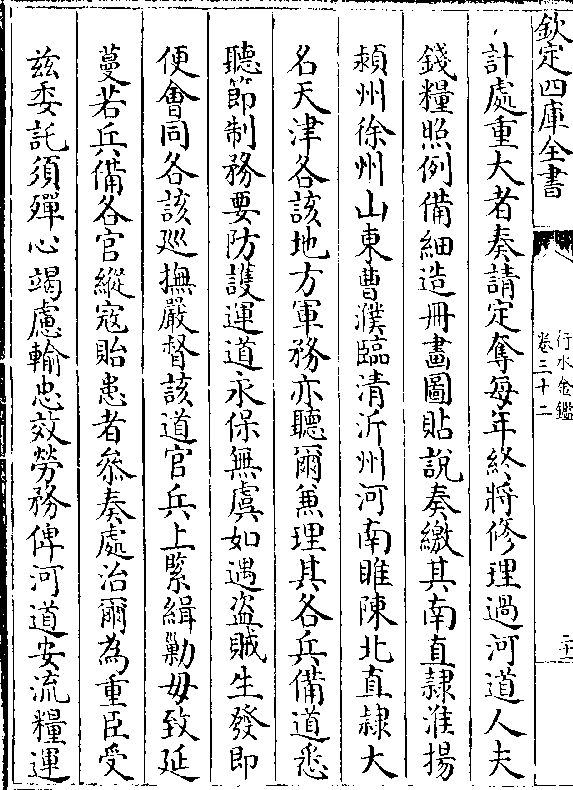 欽定四庫全書
行水金鑑
卷三十二
二十一
計處重大者奏請定奪每年終將修理過河道人夫
錢糧照例備細造冊畫圖貼說奏繳其南直隸淮揚
頼州徐州山東曹濮臨清沂州河南睢陳北直隸大
名天津各該地方軍務亦聽爾兼理其各兵備道悉
聽節制務要防護運道永保無虞如遇盜賊生發即
便會同各該廵撫嚴督該道官兵上緊緝勦毋致延
蔓若兵備各官縱寇貽患者叅奏處治爾為重臣受
兹委託須殫心竭慮輸忠效勞務俾河道安流糧運